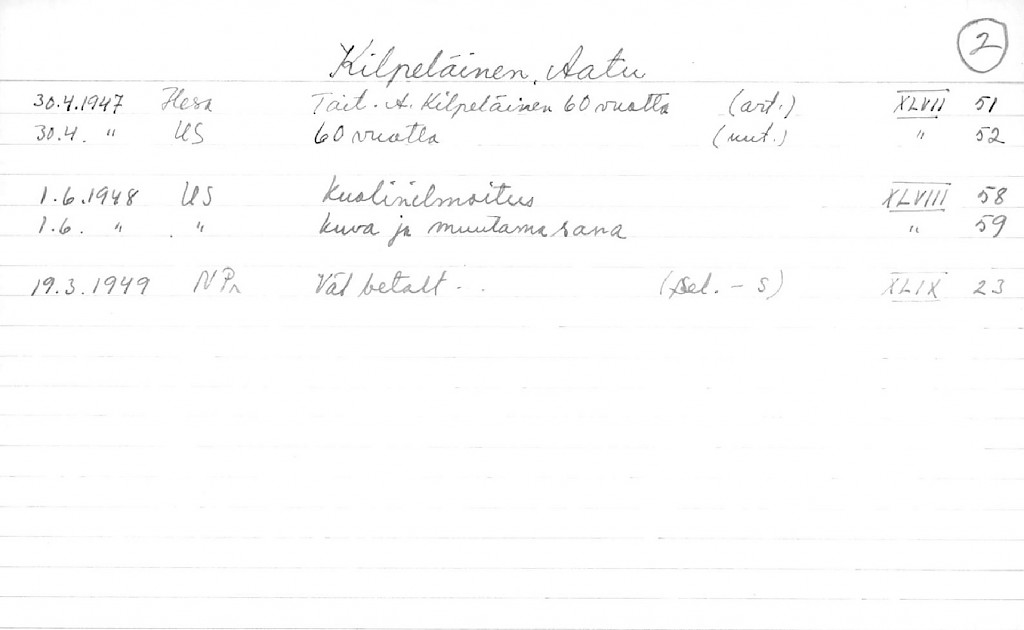 2
Kilpeläinen, Aatu
30.4.1947 Hesa Tait. A. Kilpeläinen 60 vuotta (art.) XLVII 51
30.4. " US 60 vuotta (uut.) " 52
1.6.1948 US Kuolinilmoitus XLVIII 58
1.6. " " kuva ja muutama sana " 59
19.3.1949 NPr Väl betalt.. (sel. - s) XLIX 23